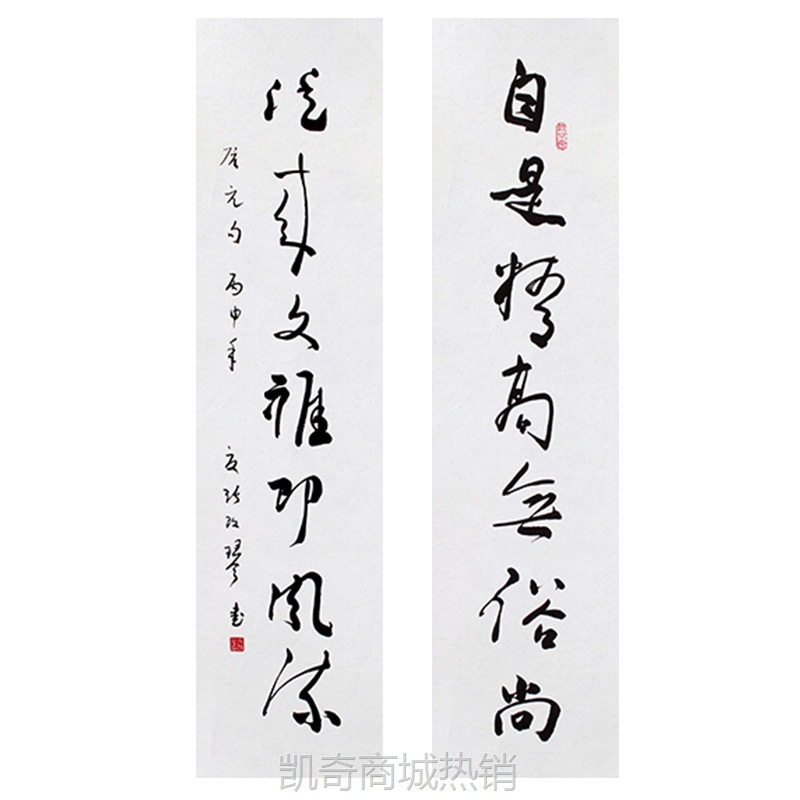 自是精高無俗尚
從來文雅即風流
啟元句 丙申年
書
凯奇商城热销